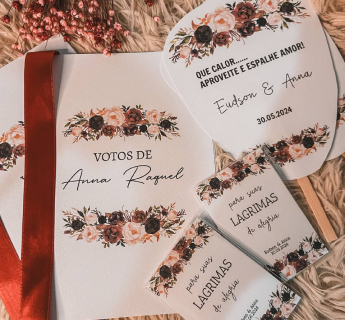 QUE CALOR......
APROVEITE E ESPALHE AMOR!
Eudson & Anna
30.05.2024
VOTOS DE
Anna Raquel
para suas
LAGRIMAS
de alegria
para suas
LAGRIMAS
de alegria